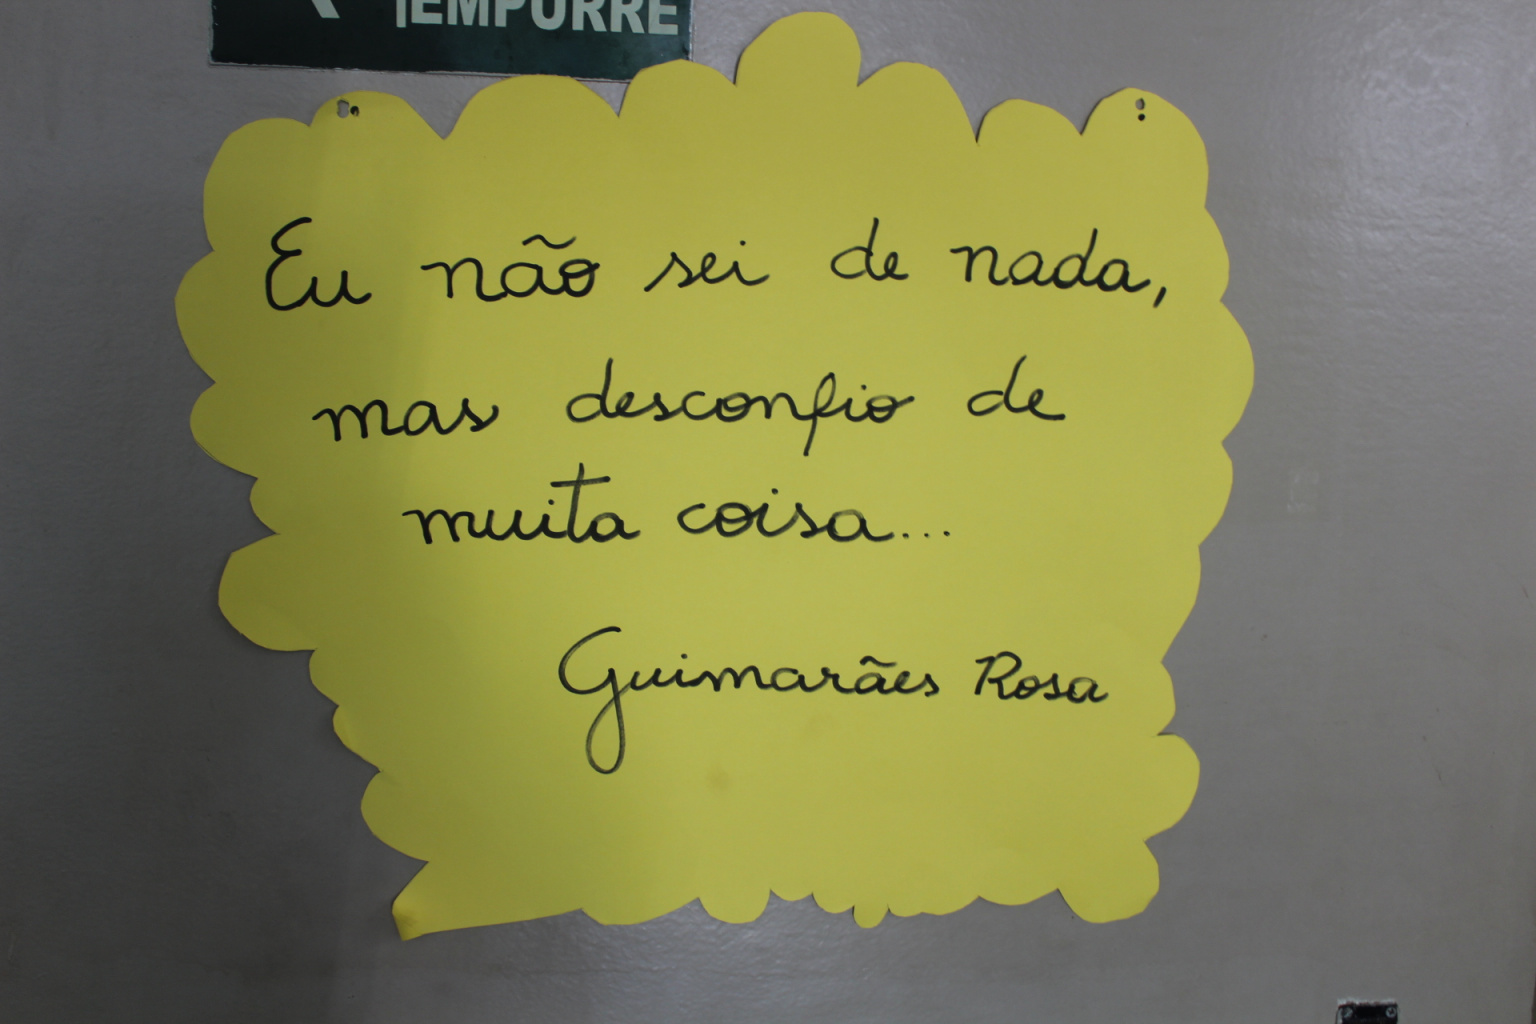 EMPURRE
Eu não sei de nada,
mas desconfio de
muita coisa...
Guimarães Rosa